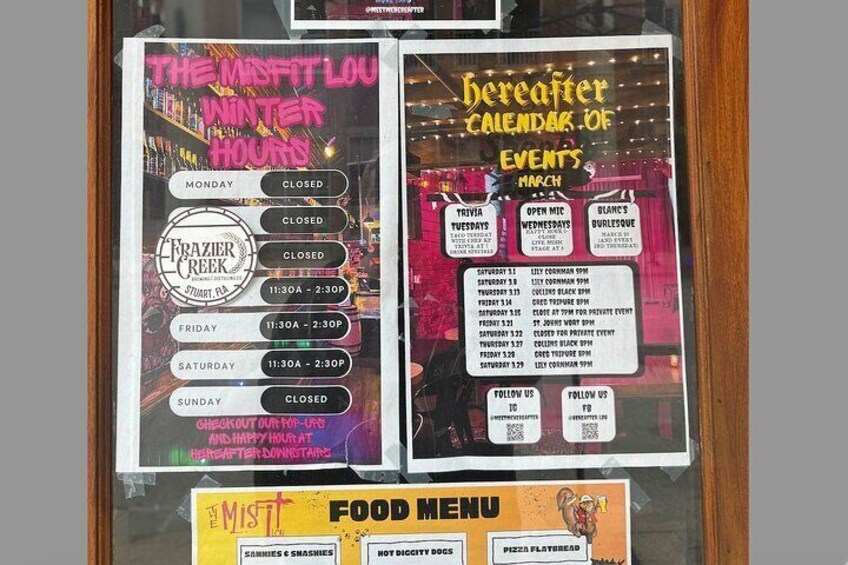 @MEETMEHEREAFTER
THE MISFIT LOU
WINTER
HOURS
MONDAY CLOSED
CLOSED
CLOSED
11:30A - 2:30P
FRIDAY 11:30A - 2:30P
SATURDAY 11:30A - 2:30P
SUNDAY CLOSED
FRAZIER
CREEK
BREWING & DISTILLING CO
STUART, FLA
CHECK OUT OUR POP-UPS
AND HAPPY HOUR AT
HEREAFTER DOWNSTAIRS
hereafter
CALENDAR OF
EVENTS
MARCH
TRIVIA
TUESDAYS
TACO TUESDAY
WITH CHEF KF
TRIVIA AT 7
DRINK SPECIALS
OPEN MIC
WEDNESDAYS
HAPPY HOUR 5-
CLOSE
LIVE MUSIC
STAGE AT 8
BLANC'S
BURLESQUE
MARCH 20
(AND EVERY
3RD THURSDAY)
SATURDAY 3.1 LILY CORNMAN 9PM
SATURDAY 3.8 LILY CORNMAN 9PM
THURSDAY 3.13 COLLINS BLACK 8PM
FRIDAY 3.14 GREG TRIPURE 8PM
SATURDAY 3.15 CLOSE AT 7PM FOR PRIVATE EVENT
FRIDAY 3.21 ST. JOHNS WORT 8PM
SATURDAY 3.22 CLOSED FOR PRIVATE EVENT
THURSDAY 3.27 COLLINS BLACK 8PM
FRIDAY 3.28 GREG TRIPURE 8PM
SATURDAY 3.29 LILY CORNMAN 9PM
FOLLOW US
IG
@MEETMEHEREAFTER
FOLLOW US
FB
@HEREAFTER.LOU
THE MISFIT LOU
FOOD MENU
SAMMIES & SMASHIES
HOT DIGGITY DOGS
PIZZA FLATBREAD